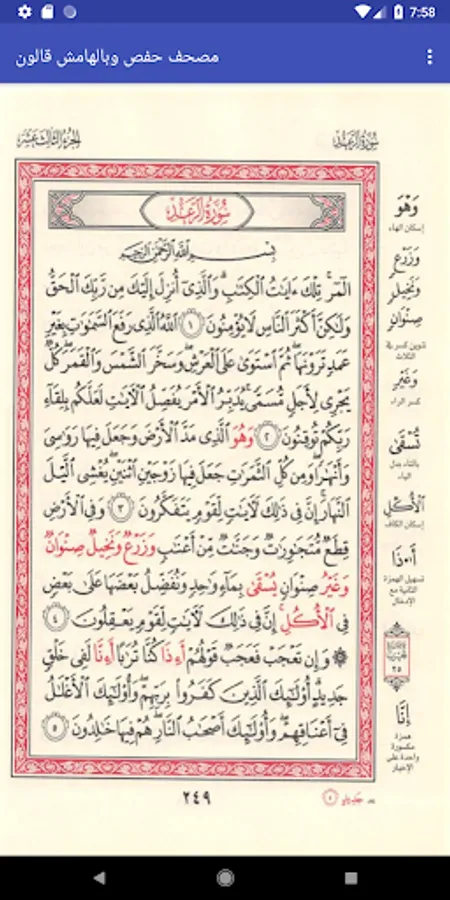 7:58
مصحف حفص وبالهامش قالون
سُورَةُ الرَّعْدِ
الجُزْءُ الثَّالِثَ عَشَرَ
سُورَةُ الرَّعْدِ
بِسْمِ اللَّهِ الرَّحْمَٰنِ الرَّحِيمِ
الٓمٓر ۚ تِلْكَ ءَايَٰتُ ٱلْكِتَٰبِ ۗ وَٱلَّذِىٓ أُنزِلَ إِلَيْكَ مِن رَّبِّكَ ٱلْحَقُّ
وَلَٰكِنَّ أَكْثَرَ ٱلنَّاسِ لَا يُؤْمِنُونَ ١ ٱللَّهُ ٱلَّذِى رَفَعَ ٱلسَّمَٰوَٰتِ بِغَيْرِ
عَمَدٍ تَرَوْنَهَا ۖ ثُمَّ ٱسْتَوَىٰ عَلَى ٱلْعَرْشِ ۖ وَسَخَّرَ ٱلشَّمْسَ وَٱلْقَمَرَ ۖ كُلٌّ
يَجْرِى لِأَجَلٍ مُّسَمًّى ۚ يُدَبِّرُ ٱلْأَمْرَ يُفَصِّلُ ٱلْءَايَٰتِ لَعَلَّكُم بِلِقَآءِ
رَبِّكُمْ تُوقِنُونَ ٢ وَهُوَ ٱلَّذِى مَدَّ ٱلْأَرْضَ وَجَعَلَ فِيهَا رَوَٰسِىَ
وَأَنْهَٰرًا ۖ وَمِن كُلِّ ٱلثَّمَرَٰتِ جَعَلَ فِيهَا زَوْجَيْنِ ٱثْنَيْنِ ۖ يُغْشِى ٱلَّيْلَ
ٱلنَّهَارَ ۚ إِنَّ فِى ذَٰلِكَ لَءَايَٰتٍ لِّقَوْمٍ يَتَفَكَّرُونَ ٣ وَفِى ٱلْأَرْضِ
قِطَعٌ مُّتَجَٰوِرَٰتٌ وَجَنَّٰتٌ مِّنْ أَعْنَٰبٍ وَزَرْعٌ وَنَخِيلٌ صِنْوَانٌ
وَغَيْرُ صِنْوَانٍ يُسْقَىٰ بِمَآءٍ وَٰحِدٍ وَنُفَضِّلُ بَعْضَهَا عَلَىٰ بَعْضٍ
فِى ٱلْأُكُلِ ۚ إِنَّ فِى ذَٰلِكَ لَءَايَٰتٍ لِّقَوْمٍ يَعْقِلُونَ ٤
۞ وَإِن تَعْجَبْ فَعَجَبٌ قَوْلُهُمْ أَءِذَا كُنَّا تُرَٰبًا أَءِنَّا لَفِى خَلْقٍ
جَدِيدٍ ۗ أُو۟لَٰٓئِكَ ٱلَّذِينَ كَفَرُوا۟ بِرَبِّهِمْ ۖ وَأُو۟لَٰٓئِكَ ٱلْأَغْلَٰلُ
فِىٓ أَعْنَاقِهِمْ ۖ وَأُو۟لَٰٓئِكَ أَصْحَٰبُ ٱلنَّارِ ۖ هُمْ فِيهَا خَٰلِدُونَ ٥
وَهْوَ
إسكان الهاء
وَزَرْعٍ
وَنَخِيلٍ
صِنْوَانٍ
تنوين كسر في
الثلاث
وَغَيْرِ
كسر الراء
تُسْقَىٰ
بالتاء بدل
الياء
ٱلْأُكْلِ
إسكان الكاف
أَ.ذَا
تسهيل الهمزة
الثانية مع
الإدخال
٢٥
إِنَّا
همزة
مكسورة
واحدة على
الإخبار
٢٤٩
جَدِيدٍ ٥